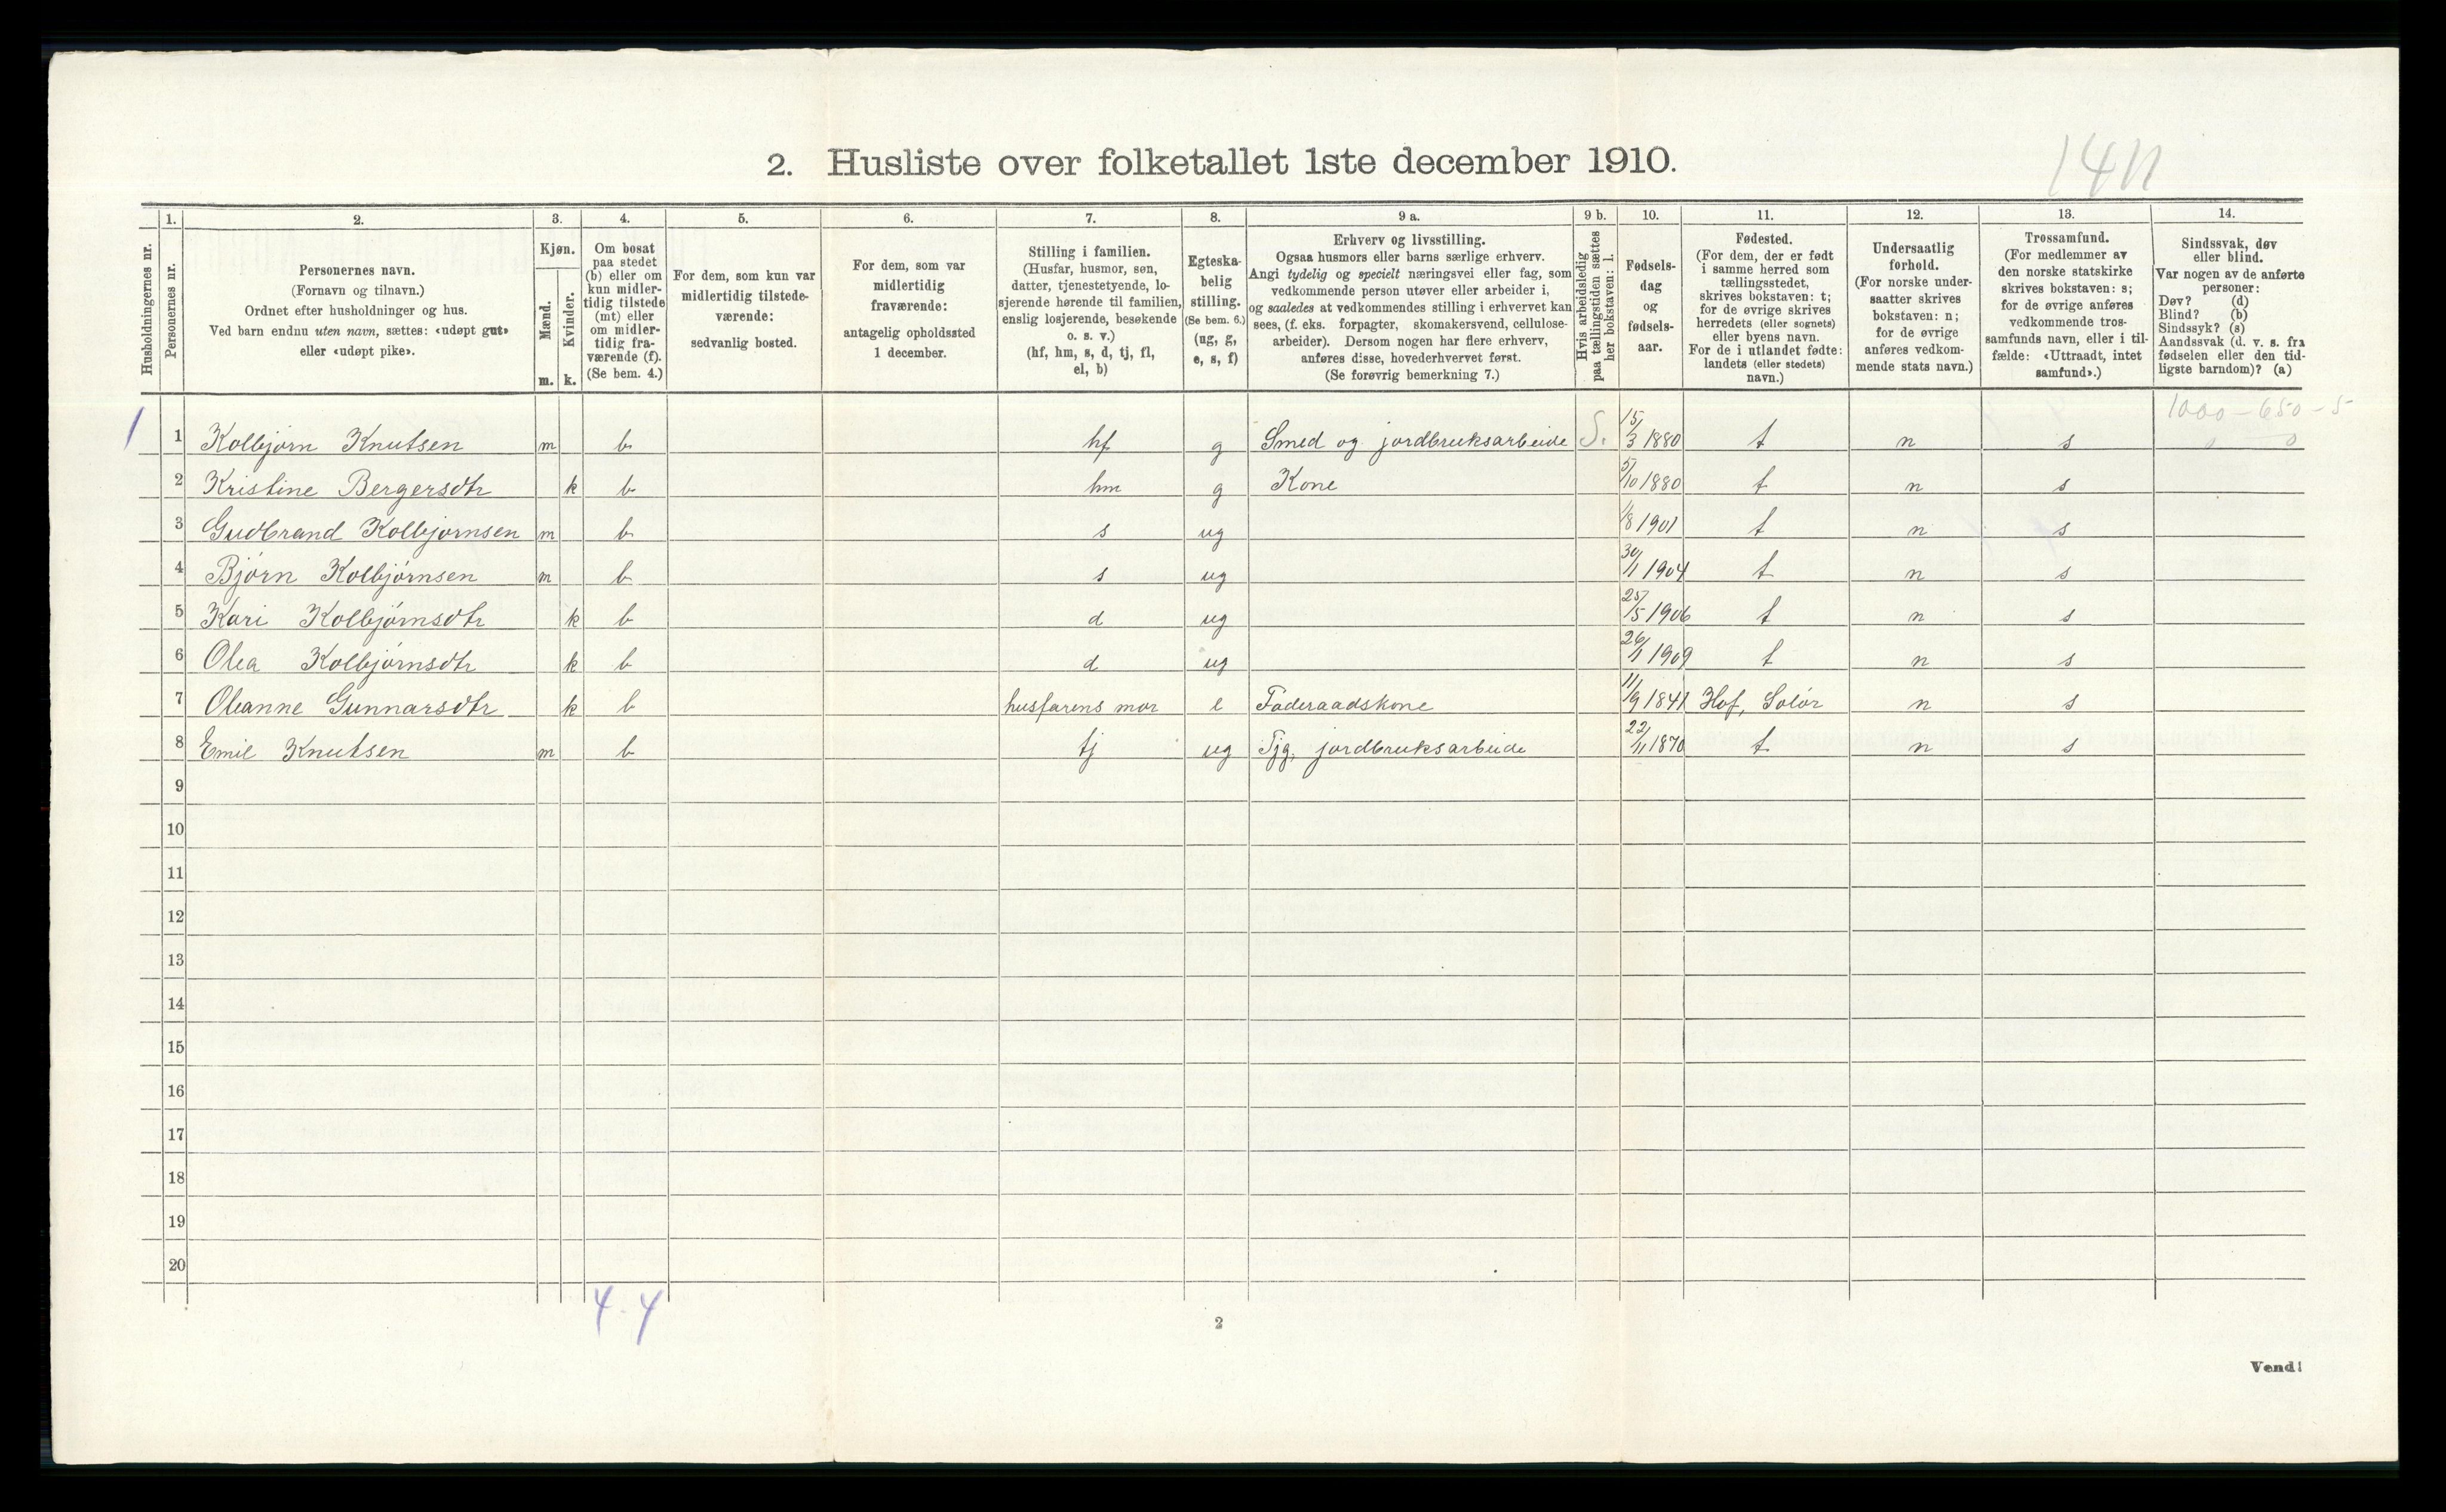 2. Husliste over folketallet 1ste december 1910.
14n
Husholdningernes nr.
1. Personernes nr.
2. Personernes navn.
(Fornavn og tilnavn.)
Ordnet efter husholdninger og hus.
Ved barn endnu uten navn, sættes: «udøpt gut»
eller «udøpt pike».
3. Kjøn.
Mænd. m.
Kvinder. k.
4. Om bosat
paa stedet
(b) eller om
kun midler-
tidig tilstede
(mt) eller
om midler-
tidig fra-
værende (f).
(Se bem. 4.)
5. For dem, som kun var
midlertidig tilstede-
værende:
sedvanlig bosted.
6. For dem, som var
midlertidig
fraværende:
antagelig opholdssted
1 december.
7. Stilling i familien.
(Husfar, husmor, søn,
datter, tjenestetyende, lo-
sjerende hørende til familien,
enslig losjerende, besøkende
o. s. v.)
(hf, hm, s, d, tj, fl,
el, b)
8. Egteska-
belig
stilling.
(Se bem. 6.)
(ug, g,
e, s, f)
9 a. Erhverv og livsstilling.
Ogsaa husmors eller barns særlige erhverv.
Angi tydelig og specielt næringsvei eller fag, som
vedkommende person utøver eller arbeider i,
og saaledes at vedkommendes stilling i erhvervet kan
sees, (f. eks. forpagter, skomakersvend, cellulose-
arbeider). Dersom nogen har flere erhverv,
anføres disse, hovederhvervet først.
(Se forøvrig bemerkning 7.)
9 b. Hvis arbeidsledig
paa tællingstiden sættes
her bokstaven: l.
10. Fødsels-
dag
og
fødsels-
aar.
11. Fødested.
(For dem, der er født
i samme herred som
tællingsstedet,
skrives bokstaven: t;
for de øvrige skrives
herredets (eller sognets)
eller byens navn.
For de i utlandet fødte:
landets (eller stedets)
navn.)
12. Undersaatlig
forhold.
(For norske under-
saatter skrives
bokstaven: n;
for de øvrige
anføres vedkom-
mende stats navn.)
13. Trossamfund.
(For medlemmer av
den norske statskirke
skrives bokstaven: s;
for de øvrige anføres
vedkommende tros-
samfunds navn, eller i til-
fælde: «Uttraadt, intet
samfund».)
14. Sindssvak, døv
eller blind.
Var nogen av de anførte
personer:
Døv? (d)
Blind? (b)
Sindssyk? (s)
Aandssvak (d. v. s. fra
fødselen eller den tid-
ligste barndom)? (a)
1000 - 650 - 5
1 1 Kolbjørn Knutsen m b hf g Smed og jordbruksarbeide S. 15/3 1880 t n s 0 0
2 Kristine Bergersdtr k b hm g Kone 5/10 1880 t n s
3 Gudbrand Kolbjørnsen m b s ug 1/8 1901 t n s
4 Bjørn Kolbjørnsen m b s ug 30/1 1904 t n s
5 Kari Kolbjørnsdtr k b d ug 25/5 1906 t n s
6 Olea Kolbjørnsdtr k b d ug 26/1 1909 t n s
7 Oleanne Gunnarsdtr k b husfarens mor e Føderaadskone 11/9 1841 Hof, Solør n s
8 Emil Knutsen m b tj ug Tjg, jordbruksarbeide 22/11 1870 t n s
9
10
11
12
13
14
15
16
17
18
19
20
4 . 4
2
Vend!